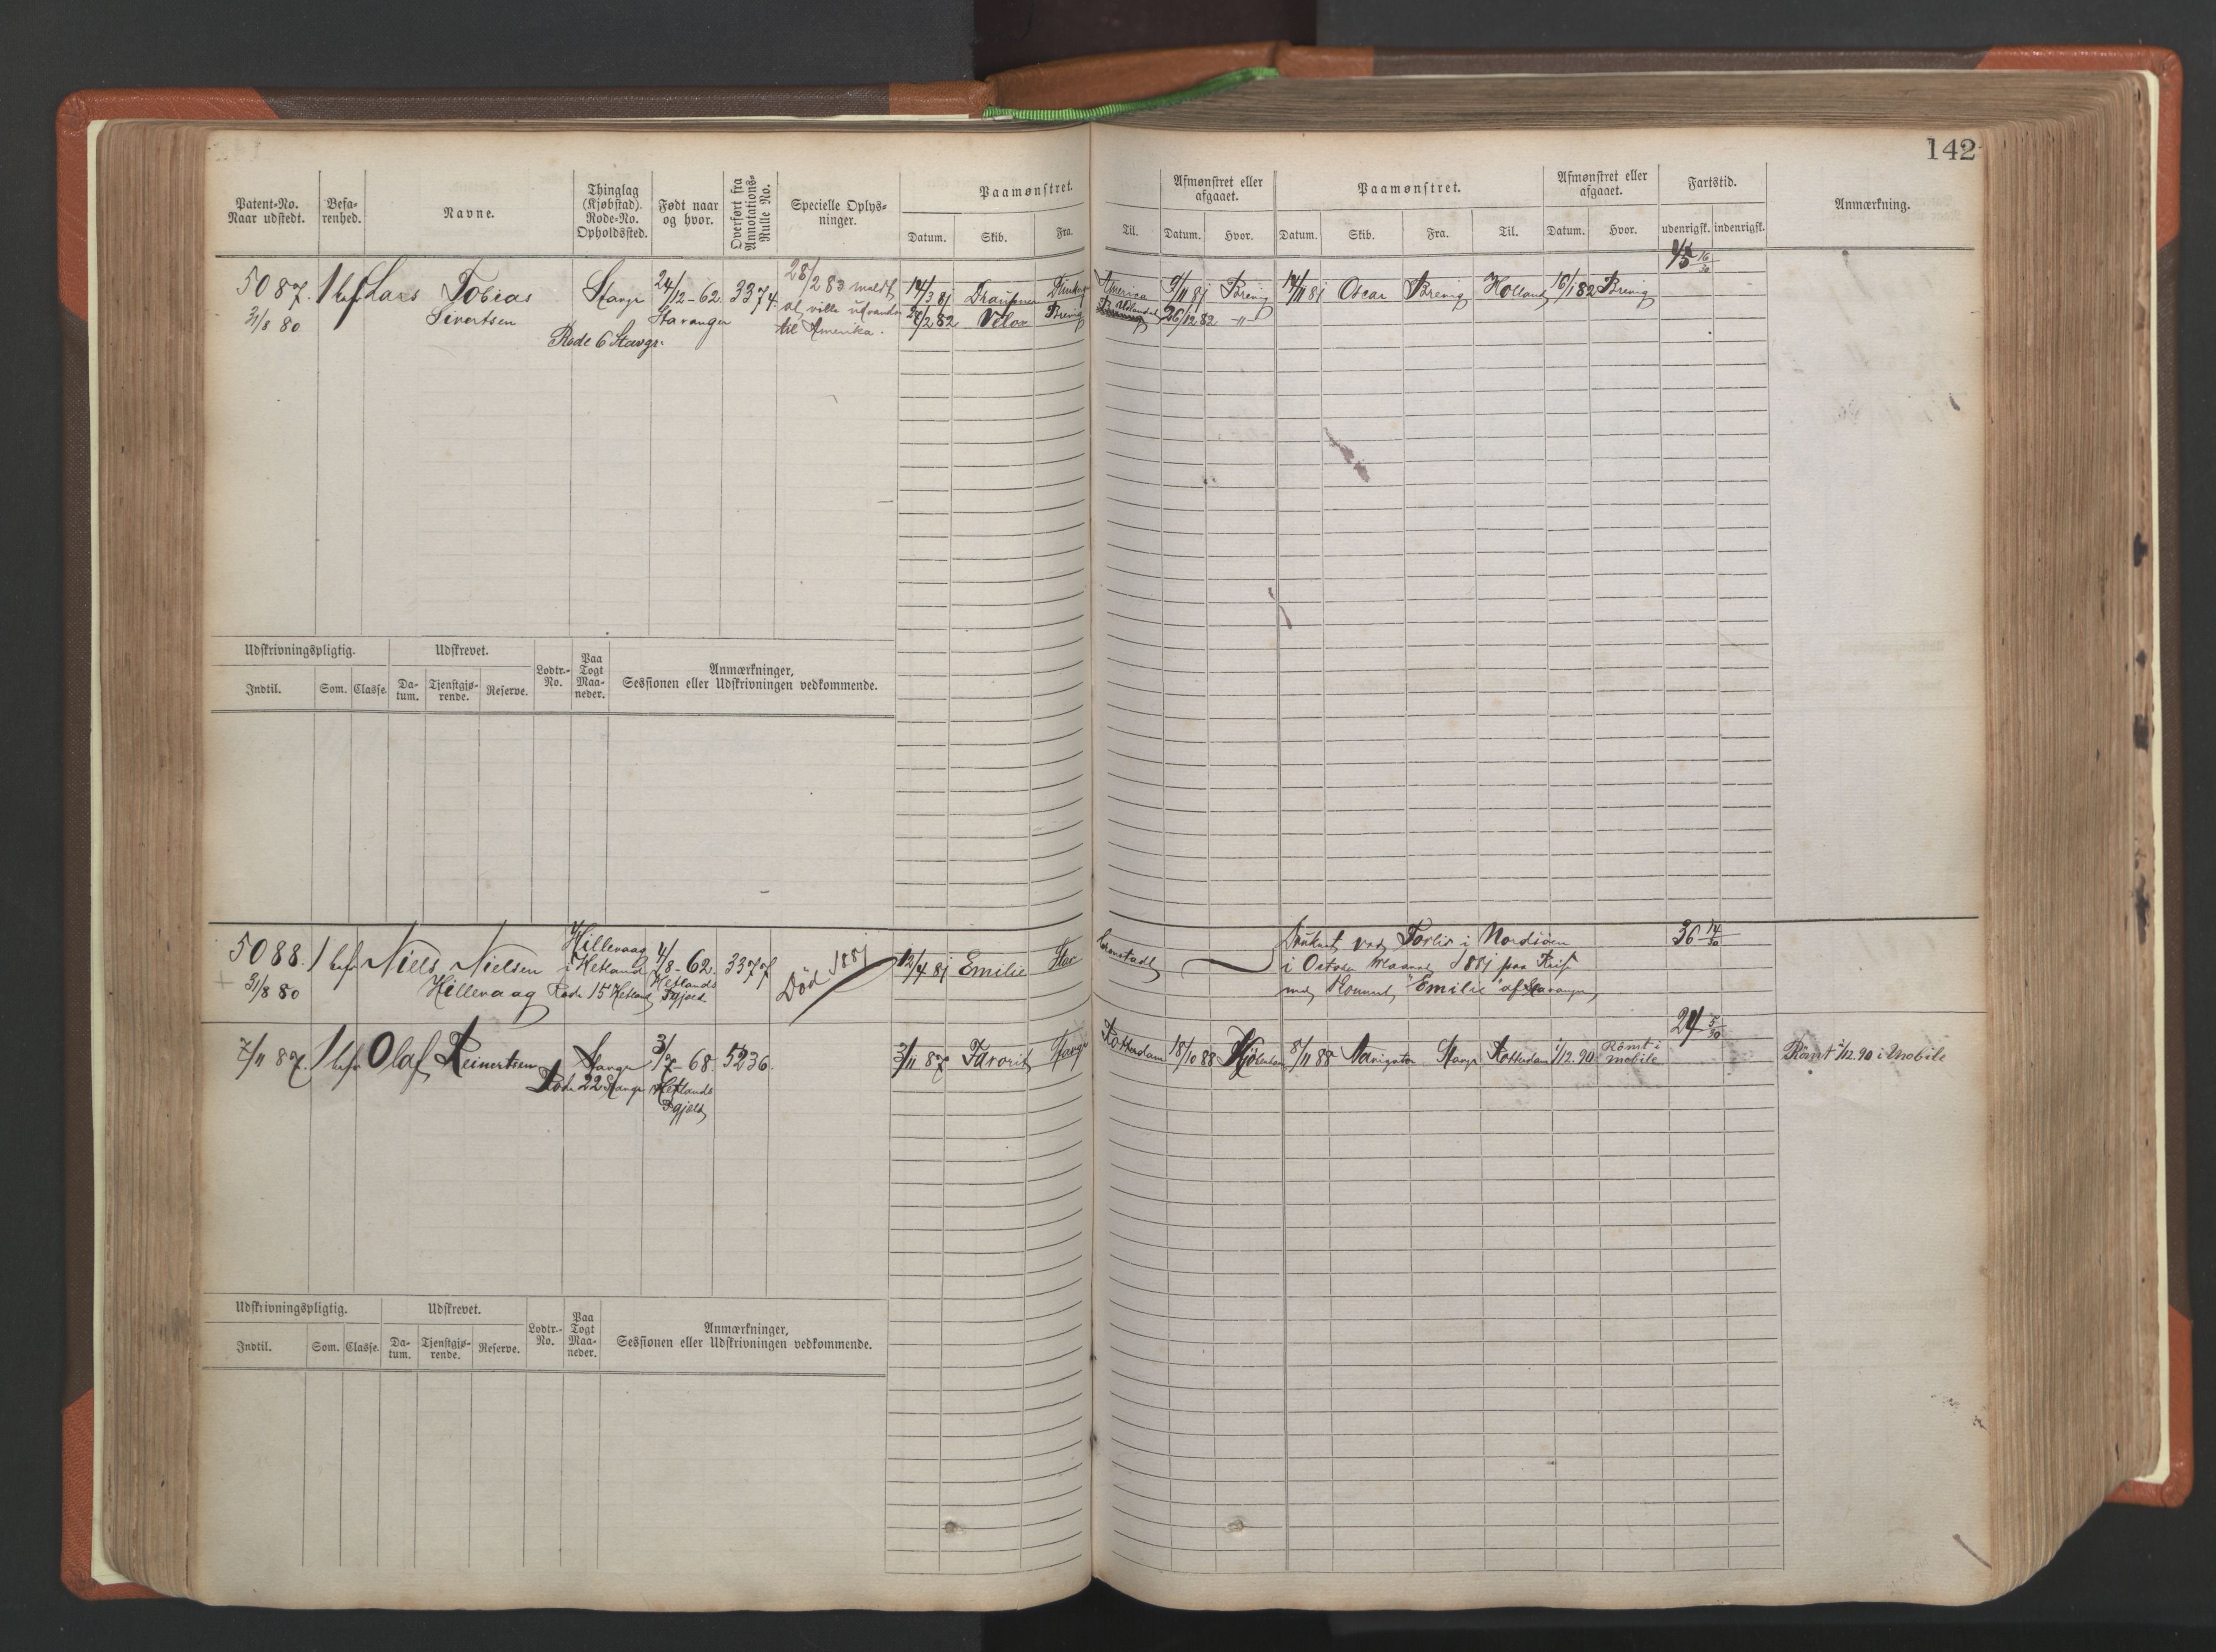 142
Patent-No.
Naar udstedt.
Befa-
renhed.
Navne.
Thinglag
(Kjøbstad).
Rode-No.
Opholdssted.
Født naar
og hvor.
Overført fra
Annotations-
Rulle No.
Specielle Oplys-
ninger.
Paamønstret.
Datum.
Skib.
Fra.
Til.
Afmønstret eller
afgaaet.
Datum.
Hvor.
Paamønstret.
Datum.
Skib.
Fra.
Til.
Afmønstret eller
afgaaet.
Datum.
Hvor.
Fartstid.
udenrigsk.
indenrigsk.
Anmærkning.
5087. 1 bef. Lars Tobias Stavgr 24/12-62 3374. 28/2 83 meldt
31/8 80 Sivertsen Stavanger at ville udvandre
Rode 6 Stavgr. til Amerika.
14/3 81 Draupner America 9/11 81 Brevig 14/11 81 Oscar Brevig Holland 16/1 82 Brevig
2/2 82 Brevig 26/12 82 -"-
Udskrivningspligtig.
Udskrevet.
Lodtr.-
No.
Paa
Togt
Maa-
neder.
Anmærkninger,
Sessionen eller Udskrivningen vedkommende.
Indtil.
Som.
Classe.
Da-
tum.
Tjenstgjø-
rende.
Reserve.
5088. 1 bef. Niels Nielsen Hillevaag 4/8-62. 3377 Død 1881
i Hetland Hetlands
31/8 80 Hillevaag Rode 15 Hetland Pgjeld
12/4 81 Emilie Cronstadt
Druknet ved Forlis i Nordsöen
i October Maaned 1881 paa Reise
med "Emilie" af Stavanger
36 14/30
7/11 87. 1 bef. Olaf Reinertsen Stavgr 3/7-68. 5236.
Rode 22 Stavgr Hetlands
Pgjeld
3/11 87 Favorit Stavgr Rotterdam 18/10 88 8/11 88 Navigator Stavgr Rotterdam 1/12.90 Römt i
mobile
24 5/30
Römt 1/12.90 i Mobile
Udskrivningspligtig.
Udskrevet.
Lodtr.-
No.
Paa
Togt
Maa-
neder.
Anmærkninger,
Sessionen eller Udskrivningen vedkommende.
Indtil.
Som.
Classe.
Da-
tum.
Tjenstgjø-
rende.
Reserve.